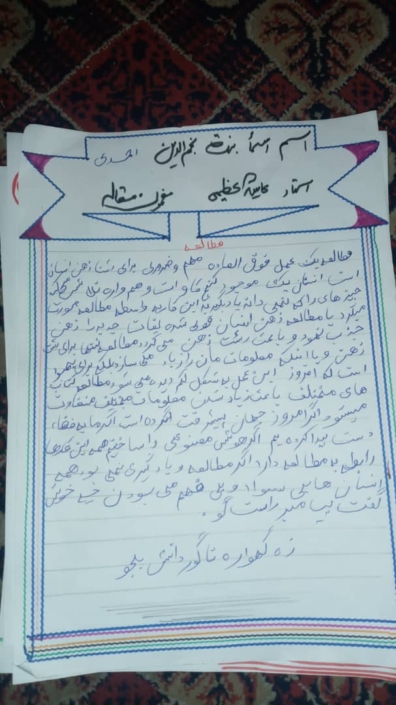 اسم اسما بنت نجم الدین احمدی
استاد عظیمی مضمون مقاله
مطالعه
مطالعه یک عمل فوق العاده مهم و ضروری برای رشد ذهن انسان
است انسان یک موجود کنجکاو است و همواره تلاش می‌کند
چیز های را که نمی داند یاد بگیرد این کار به واسطه مطالعه صورت
میگیرد با مطالعه ذهن انسان قوی شده لغات جدید را ذهن
جذب نمود و باعث رشد ذهن می گردد مطالعه نه تنها برای
ذهن و یا اینکه معلومات مان را زیاد می سازد بلکه برای
است که امروز این عمل به شکل کم دیده می شود مطالعه کتاب
های مختلف باعث زیاد شدن معلومات مختلف متفاوت
میشود اگر امروز جهان پیشرفت کرده است اگر ما به فضا
دست پیدا کرده یم اگر هوش مصنوعی را ساختیم همه این قدرها
رابطه به مطالعه دارد اگر مطالعه و یادگیری نمی بود همه
انسان هایی سواد و بی فهم می بودن چه خوش
گفت پیامبر راست گو.
زه گهواره تا گور دانش بجو